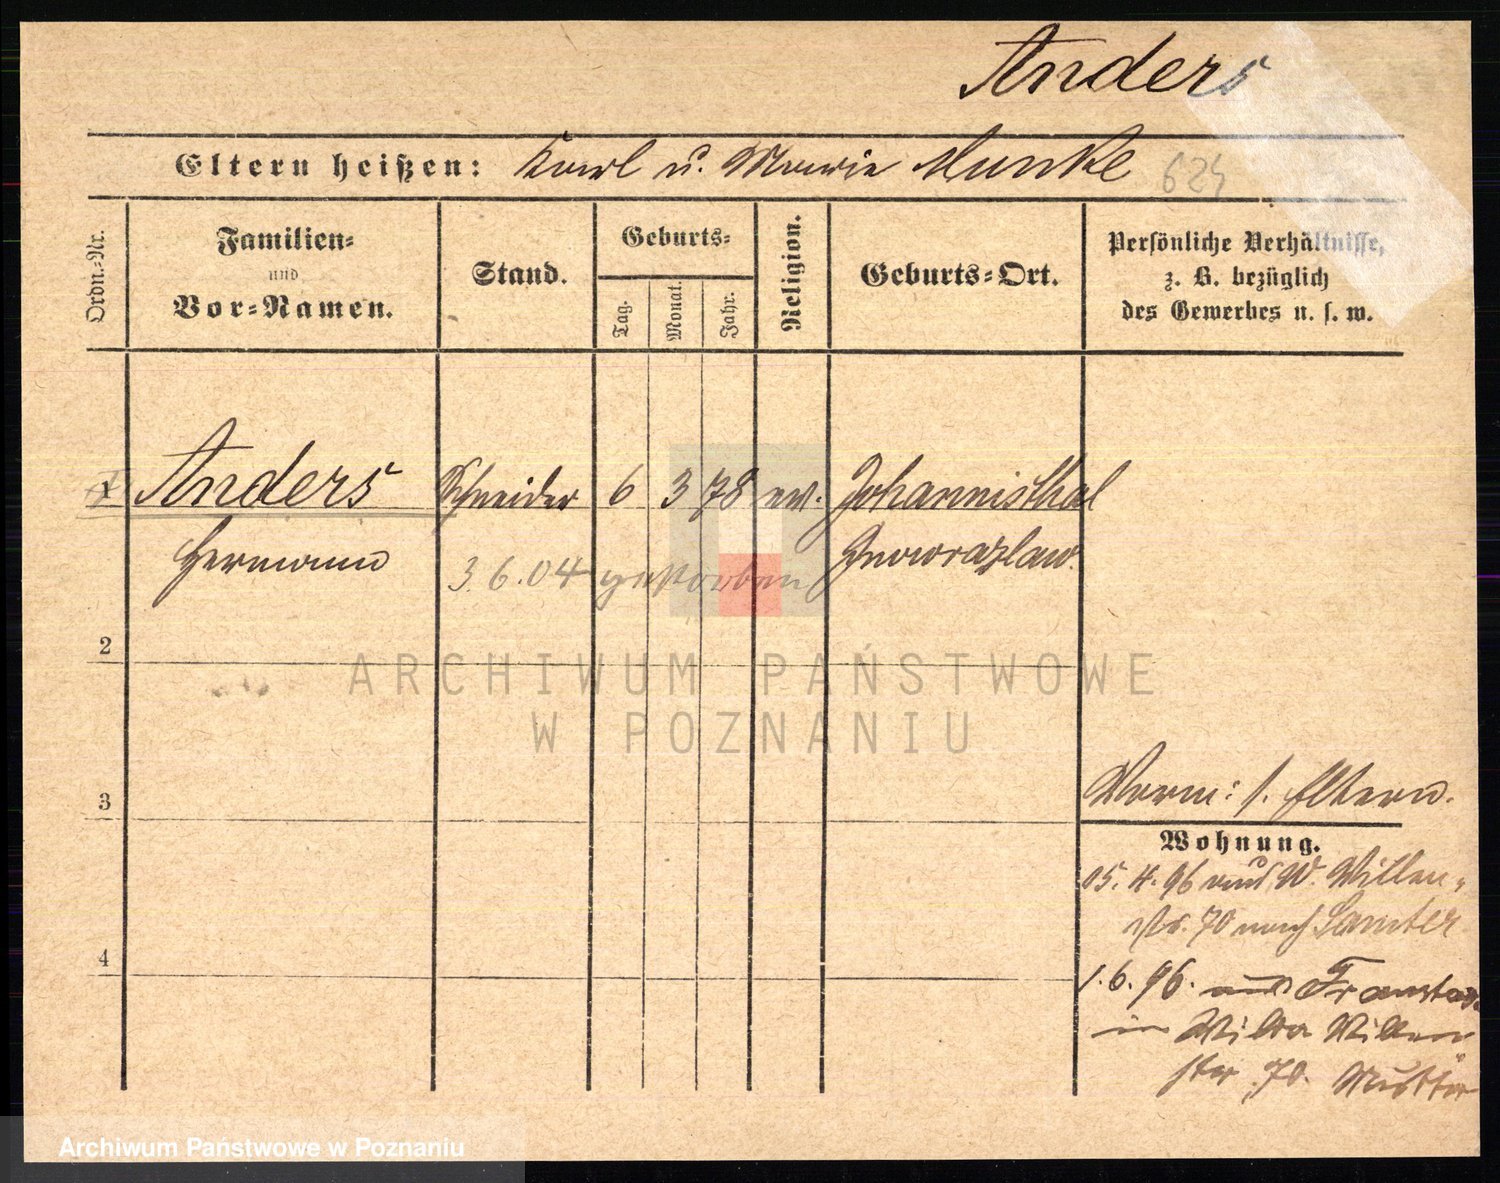 Anders
Eltern heißen: Karl u. Marie Munke 624
Ordn.-Nr.
Familien-
und
Vor-Namen.
Stand.
Geburts-
Tag.
Monat.
Jahr.
Religion.
Geburts-Ort.
Persönliche Verhältnisse,
z. B. bezüglich
des Gewerbes u. s. w.
1 Anders Schneider 6 3 78 ev. Johannisthal
Hermann Inowrazlaw.
3.6.04 gestorben
2
ARCHIWUM PAŃSTWOWE
W POZNANIU
3
Vorm: s. Eltern.
Wohnung.
05. 4. 96 W. Wallen-
str. 70 nach Samter
4
1. 6. 96. aus Fraustadt
in Wilda Wallen
str. 70.
Archiwum Państwowe w Poznaniu